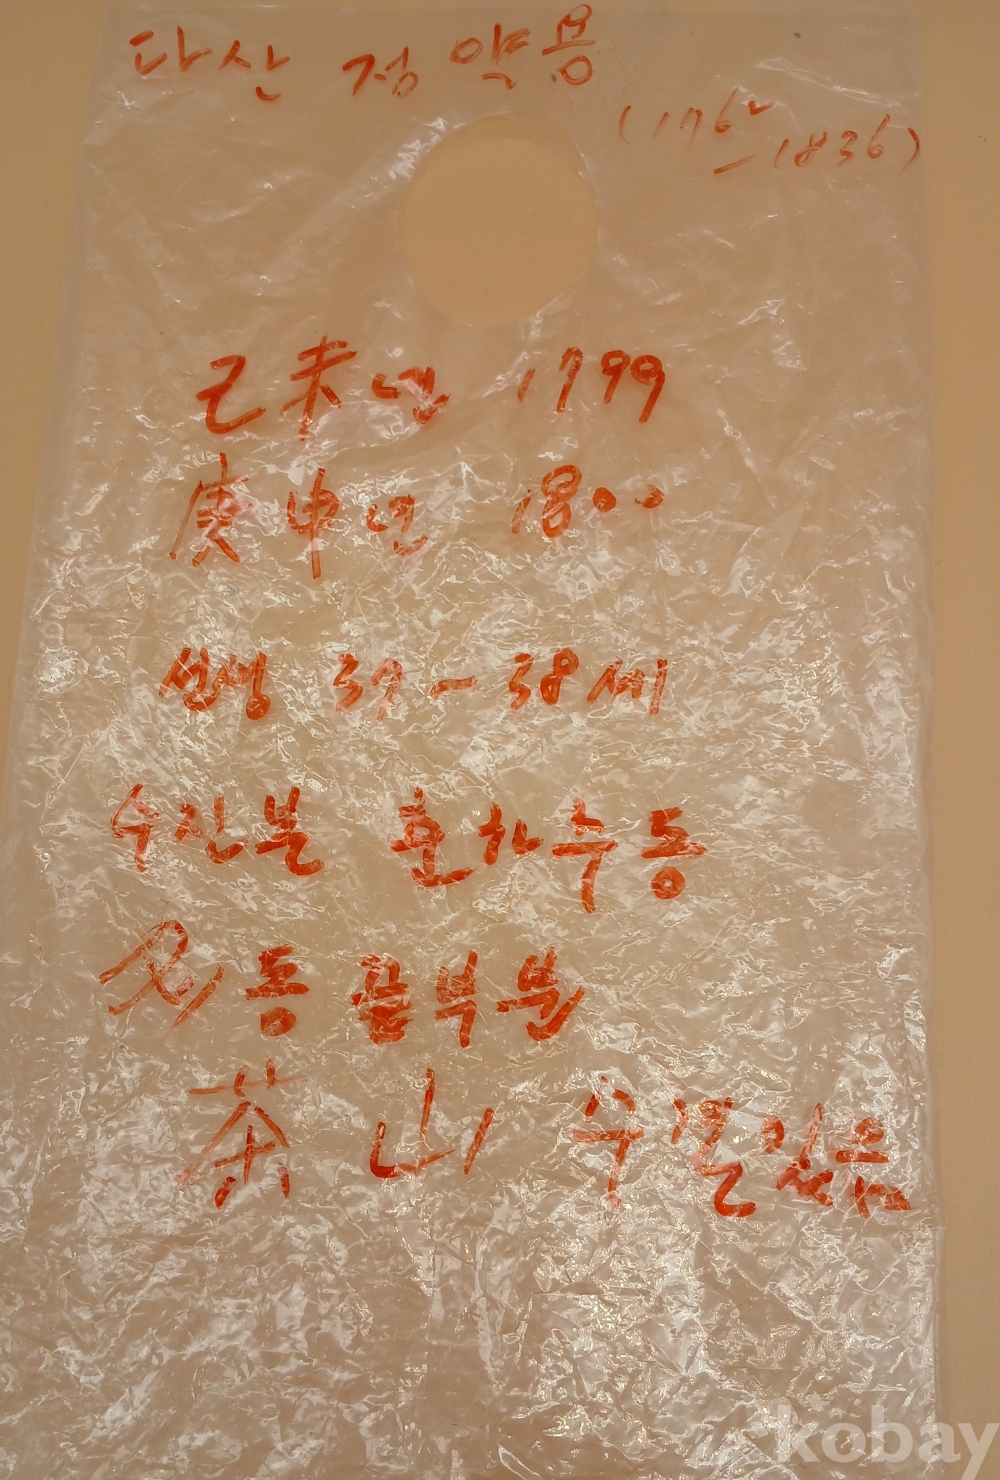 다산 정약용
(1762
-1836)
己未년 1799
庚申년 1800
선생 37-38세
수진본 춘하추동
冬동 끝부분
茶山 수결있음
kobay